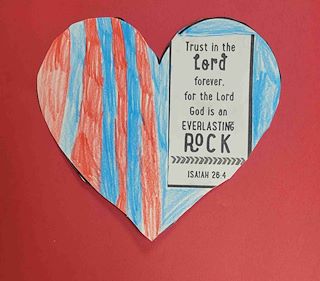 Trust in the
Lord
forever,
for the Lord
God is an
EVERLASTING
ROCK
ISAIAH 26:4